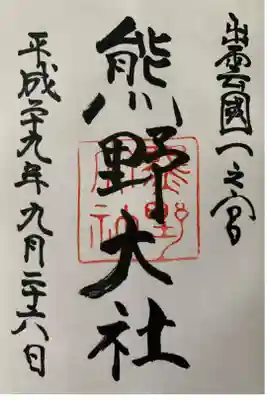 出雲國一之宮
熊野大社
平成二十九年九月二十六日